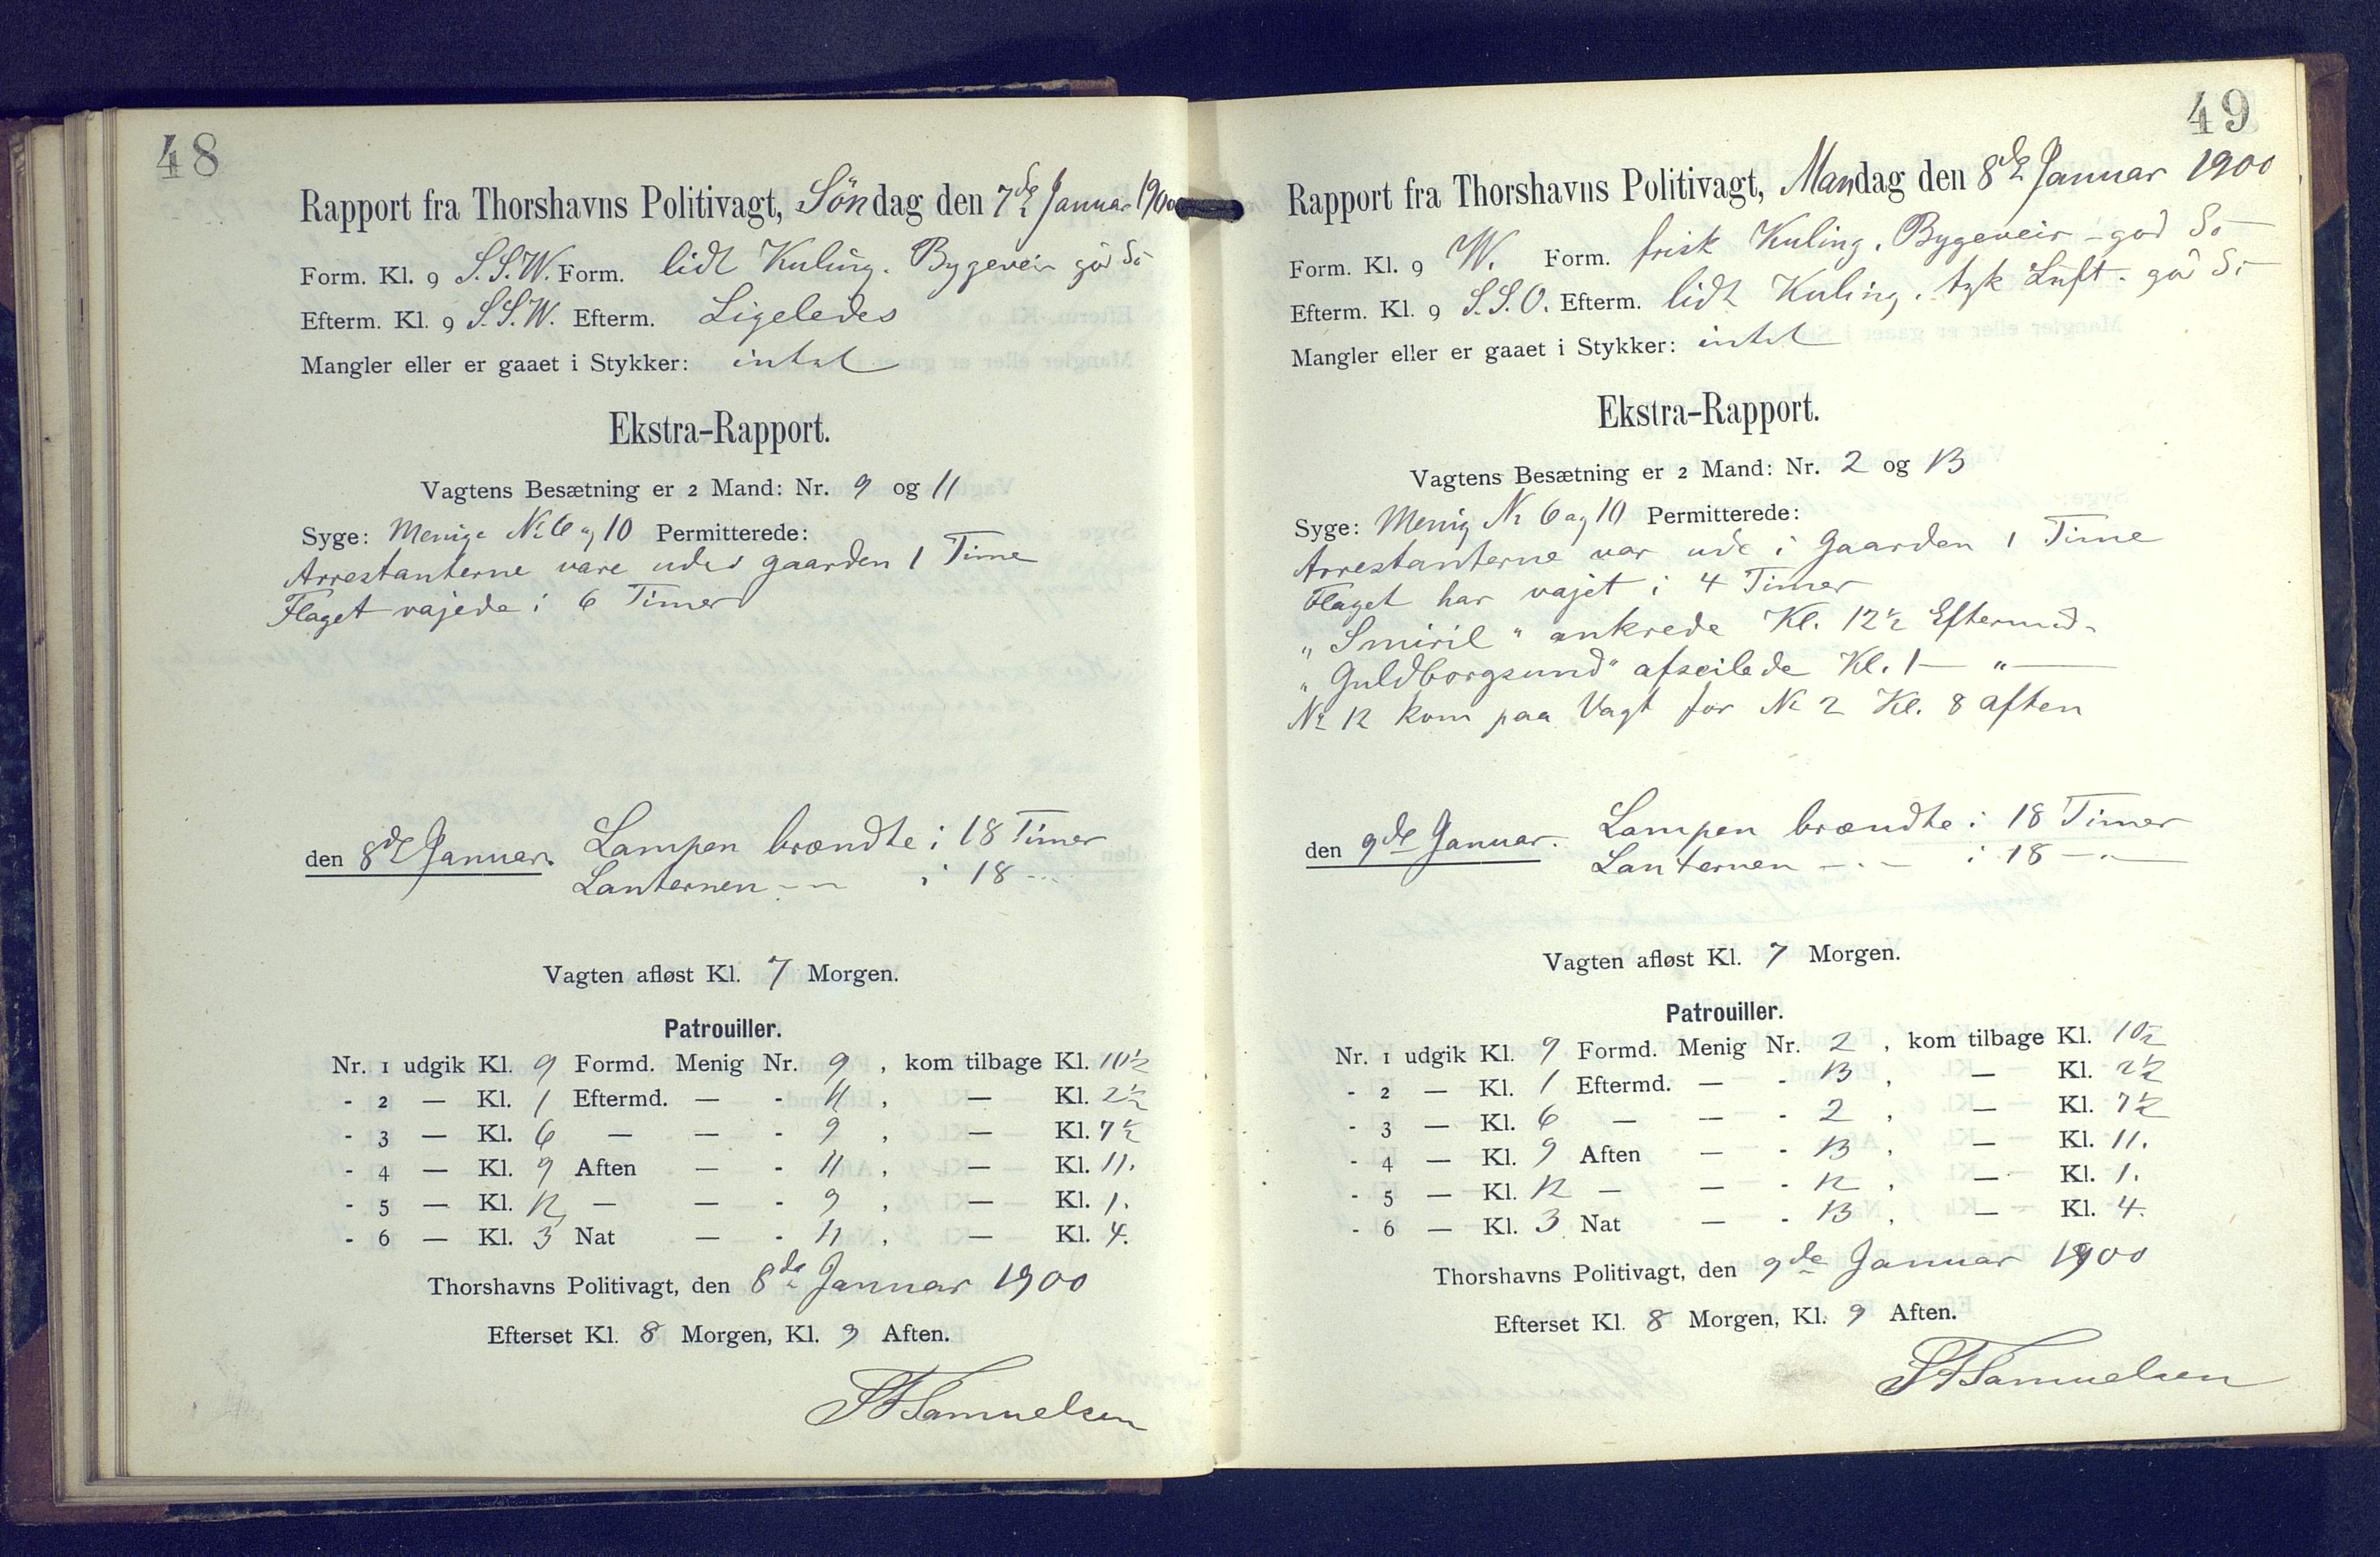 48
Rapport fra Thorshavns Politivagt, Söndag den 7de Januar 1900
Form. Kl. 9 S.S.W. Form. lidt Kuling. Bygeveir god Sö
Efterm. Kl. 9 S.S.W. Efterm. Ligeledes
Mangler eller er gaaet i Stykker: intet
Ekstra-Rapport.
Vagtens Besætning er 2 Mand: Nr. 9 og 11
Syge: Menige No 6 og 10 Permitterede:
Arrestanterne vare ude i gaarden 1 Time
Flaget vajede i 6 Timer
den 8de Januar. Lampen brændte i 18 Timer
Lanternen — „ i 18 —
Vagten afløst Kl. 7 Morgen.
Patrouiller.
Nr. 1 udgik Kl. 9 Formd. Menig Nr. 9, kom tilbage Kl. 10½
- 2 — Kl. 1 Eftermd. — - 11, — Kl. 2½
- 3 — Kl. 6 — — - 9, — Kl. 7½
- 4 — Kl. 9 Aften — - 11, — Kl. 11.
- 5 — Kl. 12 — — - 9, — Kl. 1.
- 6 — Kl. 3 Nat — - 11, — Kl. 4.
Thorshavns Politivagt, den 8de Januar 1900
Efterset Kl. 8 Morgen, Kl. 9 Aften.
Samuelsen
49
Rapport fra Thorshavns Politivagt, Mandag den 8de Januar 1900
Form. Kl. 9 W. Form. frisk Kuling. Bygeveir - god Sö
Efterm. Kl. 9 S.S.O. Efterm. lidt Kuling, tyk Luft - god Sö
Mangler eller er gaaet i Stykker: intet
Ekstra-Rapport.
Vagtens Besætning er 2 Mand: Nr. 2 og 13
Syge: Menig No 6 og 10 Permitterede:
Arrestanterne var ude i Gaarden 1 Time
Flaget har vajet i 4 Timer
„Smiril" ankrede Kl. 12½ Eftermd.
„Guldborgsund" afseilede Kl. 1 — " —
No 12 kom paa Vagt for No 2 Kl. 8 aften
den 9de Januar. Lampen brændte i 18 Timer
Lanternen — " — i 18 — " —
Vagten afløst Kl. 7 Morgen.
Patrouiller.
Nr. 1 udgik Kl. 9 Formd. Menig Nr. 2, kom tilbage Kl. 10½
- 2 — Kl. 1 Eftermd. — - 13, — Kl. 2½
- 3 — Kl. 6 — — - 2, — Kl. 7½
- 4 — Kl. 9 Aften — - 13, — Kl. 11.
- 5 — Kl. 12 — — - 12, — Kl. 1.
- 6 — Kl. 3 Nat — - 13, — Kl. 4.
Thorshavns Politivagt, den 9de Januar 1900
Efterset Kl. 8 Morgen, Kl. 9 Aften.
Samuelsen